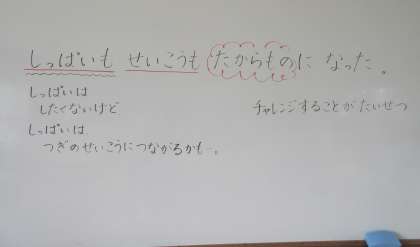 しっぱいも せいこうも たからものに なった。
しっぱいは
したくないけど
しっぱいは
つぎのせいこうにつながるかも…。
チャレンジすることが たいせつ